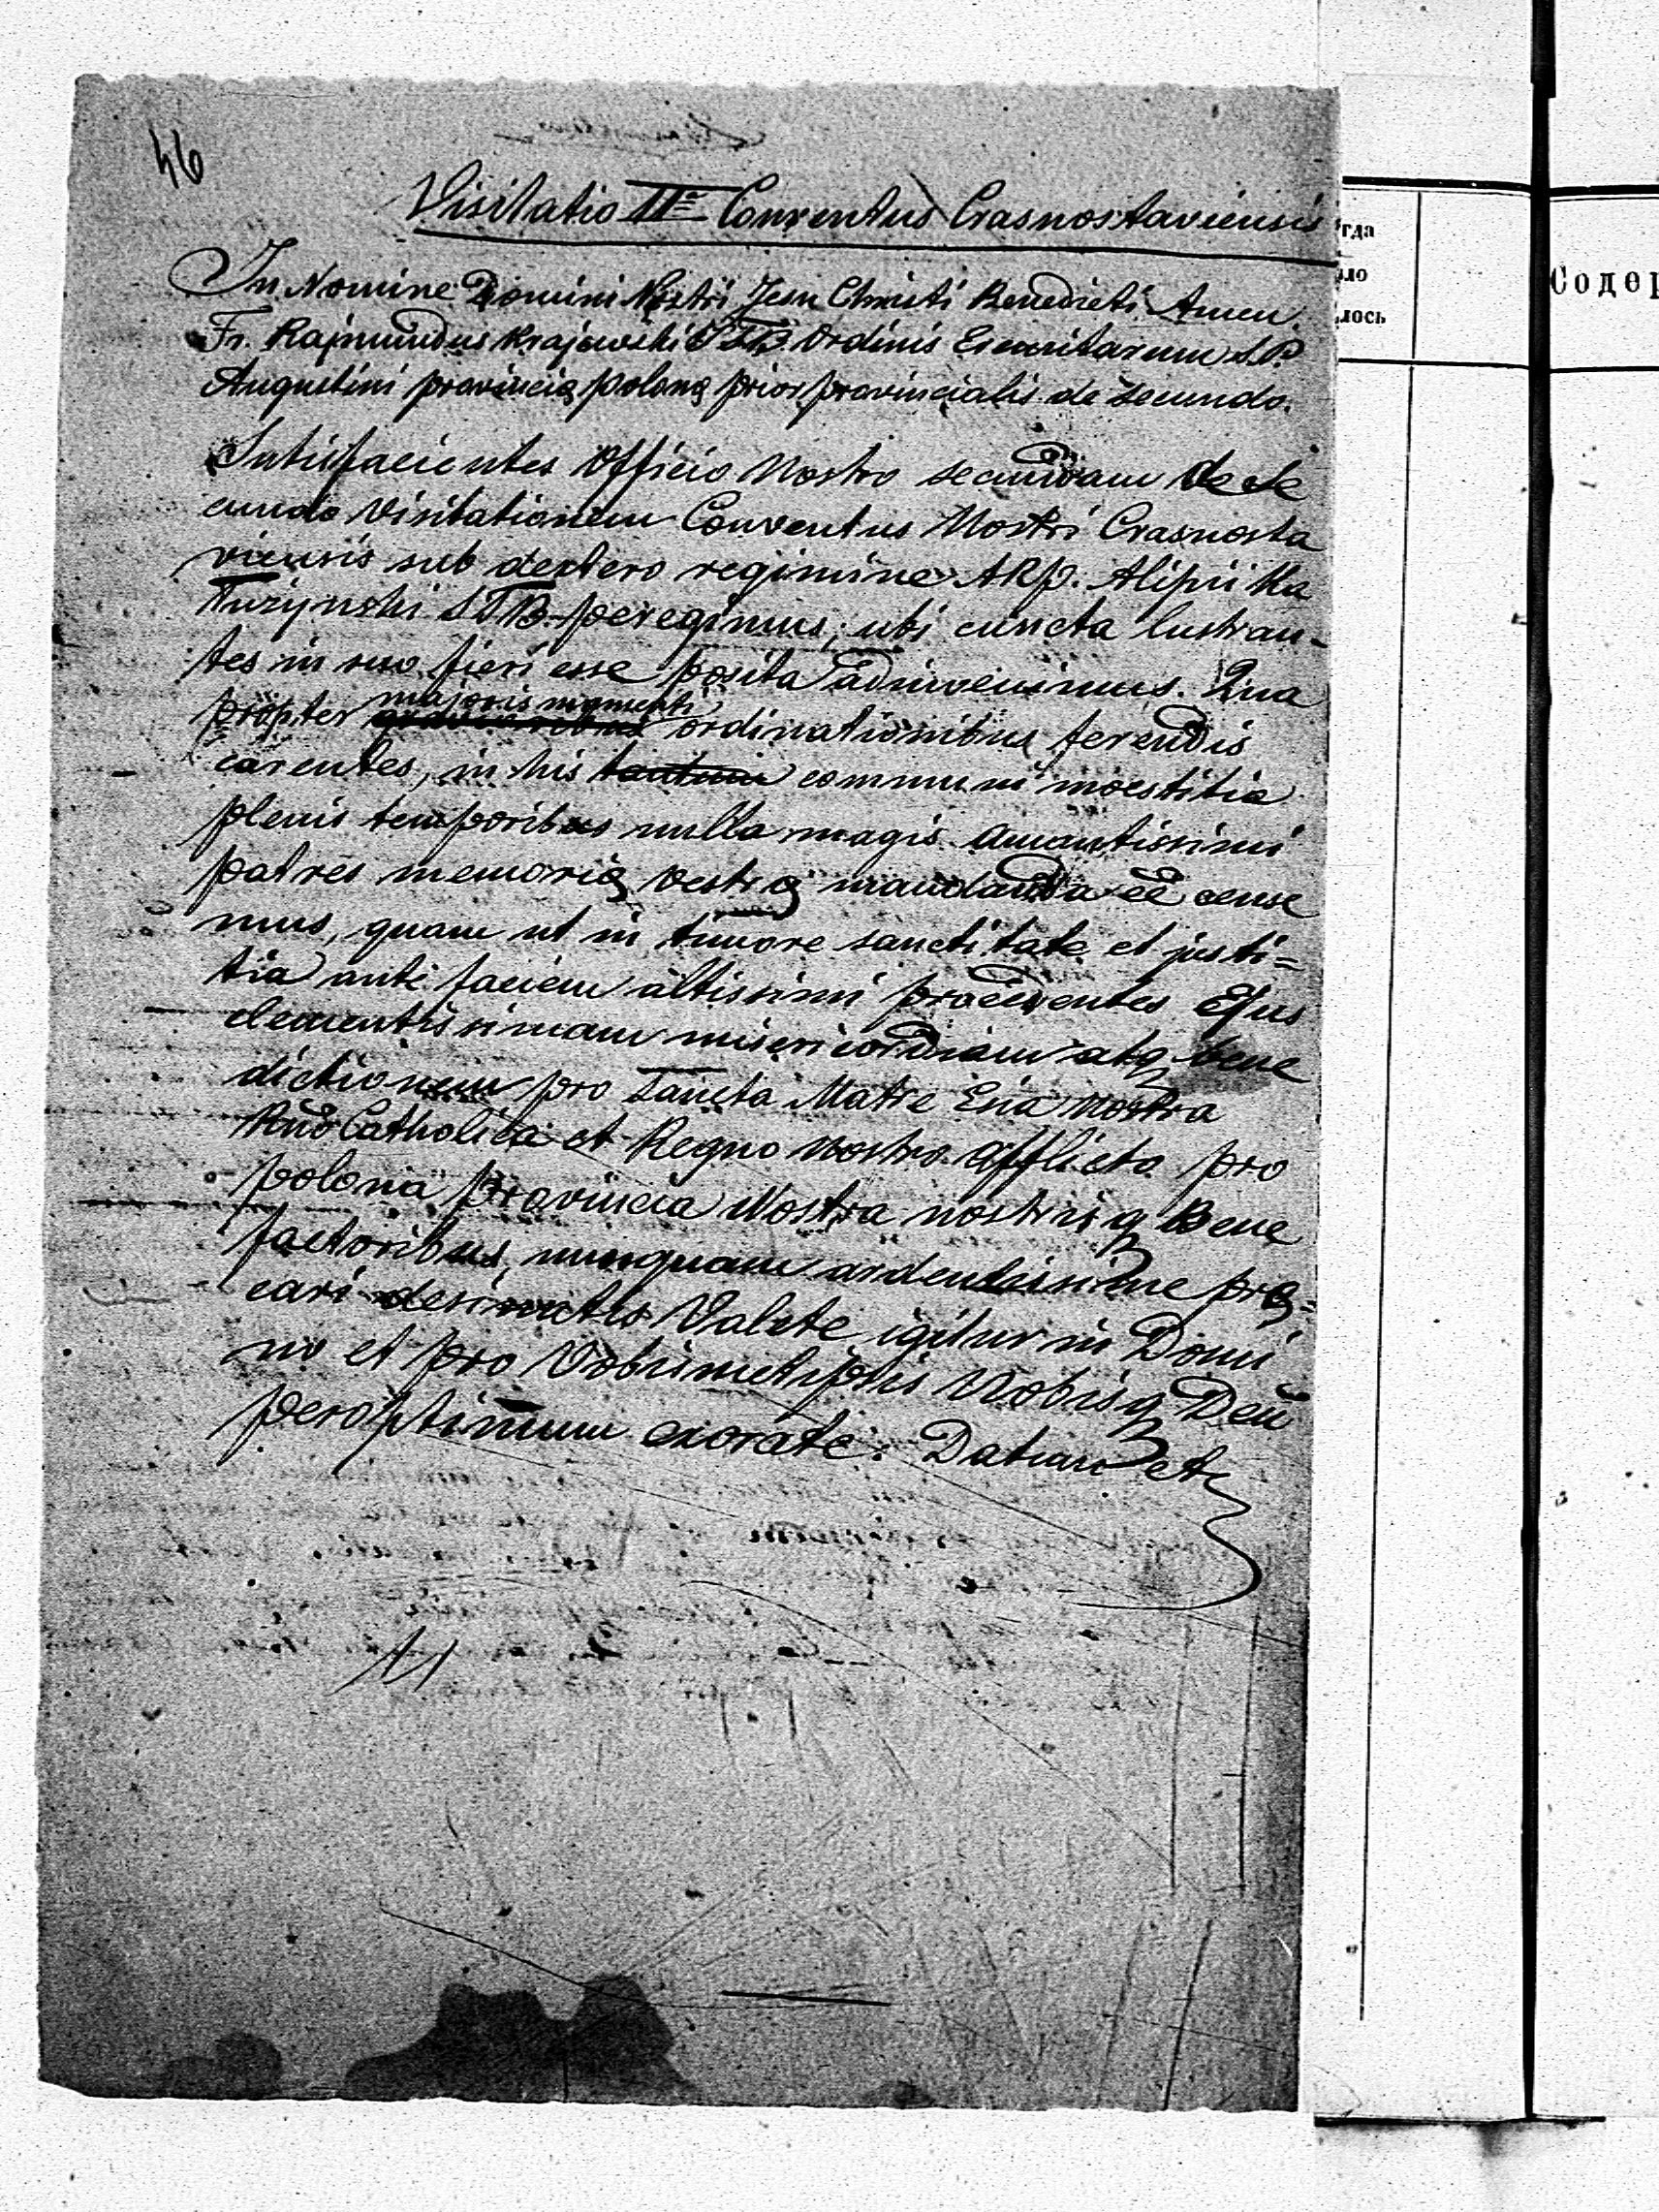 46
Visitatio IIa Conventus Crasnostaviensis
In Nomine Domini Nostri Jesu Christi Benedicti Amen.
Fr. Rajmundus Krajewski STB Ordinis Eremitarum S.P.
Augustini provincię polonę prior provincialis de secundo.
Satisfacientes Officio Nostro secundam de se
cundo Visitationem Conventus Nostri Crasnosta
viensis sub dextero regimine ARP. Alipii Ma
Turzynski STB peregimus; ubi cuncta lustran-
tes in suo fieri esse posita adinvenimus. Qua
propter majoris momenti ordinationibus ferendis
carentes, in his tantum communi moestitia
plenis temporibus nulla magis amantissimi
patres memorię vestrę mandanda eē cense
mus, quam ut in timore sanctitate et justi=
tia ante faciem altissimi procedentes Ejus
clementissimam misericordiam atq bene
dictionem pro Sancta Matre Ecia Nostra
Rnō Catholica et Regno nostro afflicto pro
polona provincia Nostra nostrisq Bene
factoribus, nunquam ardentissime prę=
cari desinetis Valete igitur in Domi
no et pro Vobismetipsis Nobisq Deū
peroptimum exorate. Datum etc
гда
ло
лось
Содер